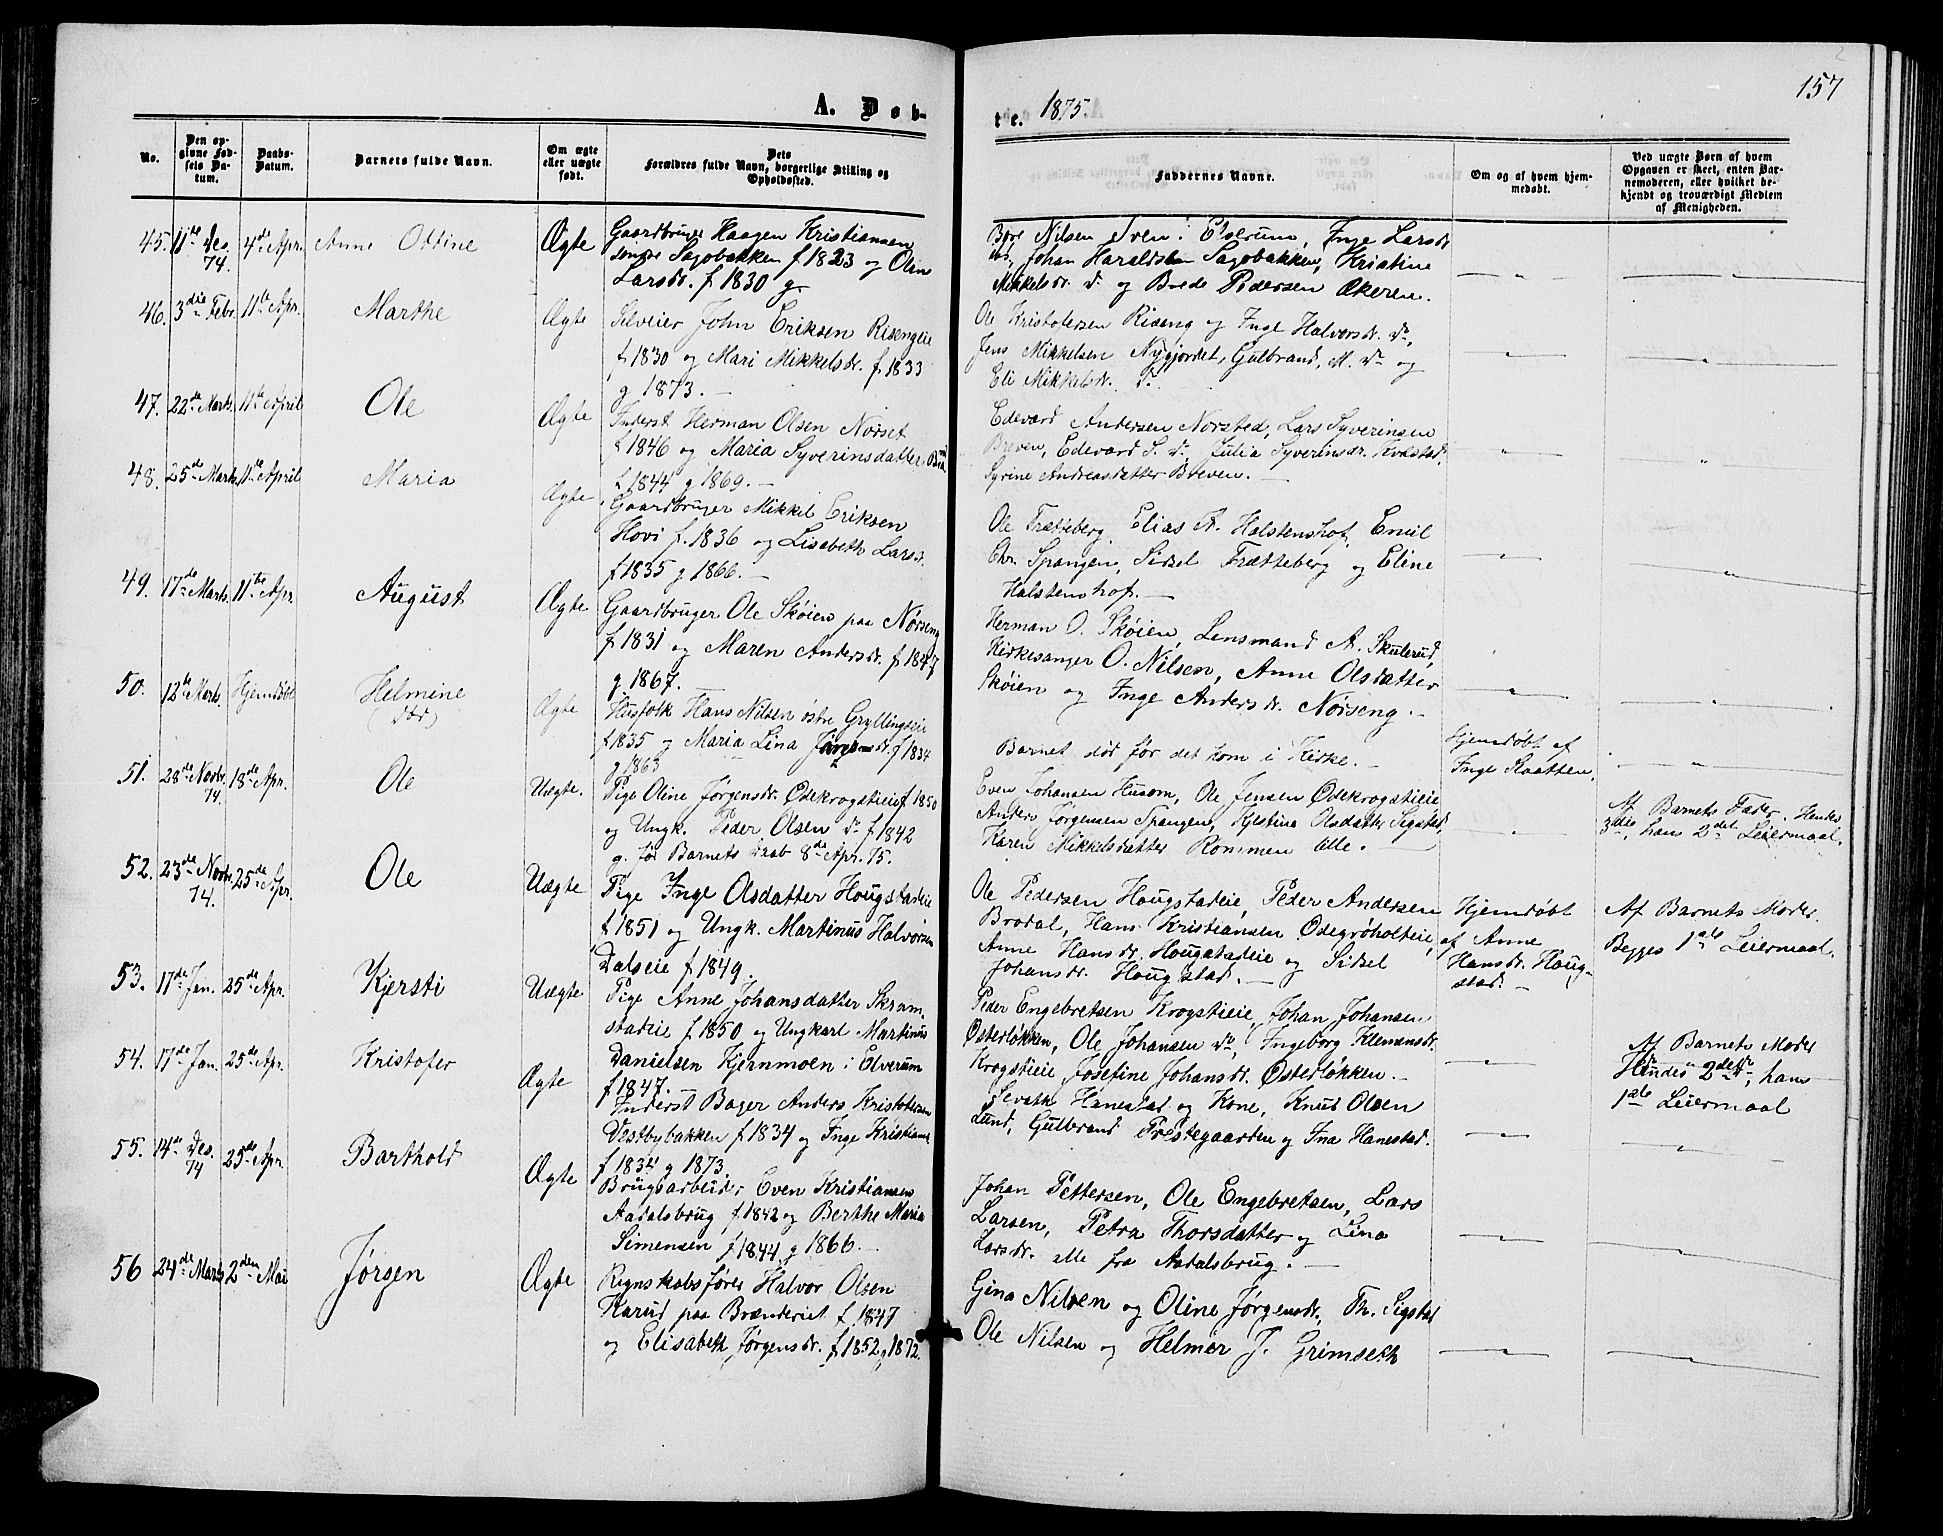 157
A. Døb-
te. 1875.
No.
Den opgivne Fødsels Datum.
Daabs-Datum.
Barnets fulde Navn.
Om ægte eller uægte født.
Dets Forældres fulde Navn, borgerlige Stilling og Opholdssted.
Faddernes Navne.
Om og af hvem hjemmedøbt.
Ved uægte Børn af hvem Opgaven er skeet, enten Barnemoderen, eller hvilket bekjendt og troværdigt Medlem af Menigheden.
45. 11te Des. 74. 4de Apr. Anne Ottine Ægte
Gaardbruger Haagen Kristiansen
søndre Sagbakken f 1823 og Olea
Larsdr. f 1830 g
Nilsen Sven i Elverum, Inge Larsdr
Johan Haraldsen Sagbakken, Kristine
Mikkelsdr. do og Brede Pedersen Økeren.
46. 3die Febr. 11te Apr. Marthe Ægte
Selveier John Eriksen Risengeie
f 1830 og Mari Mikkelsdr. f 1833
g 1873. —
Ole Kristofersen Riseng og Inge Halvorsdr. do,
Jens Mikkelsen Nygjordet, Gulbrand M. do og
Eli Mikkelsdr. do.
47. 22de Marts. 11te April Ole Ægte
Inderst Herman Olsen Norset
f 1846 og Maria Syverinsdatter
f 1844 g 1869. —
Edevard Andersen Norsted, Lars Syverinsen
Breven, Edevard S. do, Julia Syverinsdr. Kvastad,
Syrine Andreasdatter Breven. —
48. 25de Marts. 11te April Maria Ægte
Gaardbruger Mikkel Eriksen
Hovi f. 1836 og Lisabeth Larsdr.
f 1835 g 1866. —
Ole Trætteberg, Elias A. Halstenshof, Emil
Chr. Spangen, Sidsel Trætteberg og Eline
Halstenshof. —
49. 17de Marts. 11te Apr. August Ægte
Gaardbruger Ole Skøien paa Nørseng
f 1831 og Maren Andersdr. f 1847
g 1867.
Herman O. Skøien, Lensmand A. Skulerud,
Kirkesanger O. Nilsen, Anne Olsdatter
Skøien og Inge Andersdr. Nørseng. —
50. 12te Marts. Hjemdøbt Helmine (død) Ægte
Husfolk Hans Nilsen østre Gryllingseie
f 1835 og Maria Lina Jørgensdr. f 1834
g 1863
Barnet død før det kom i Kirke. —
Hjemdøbt af
Inge Kaatten.
51. 28de Novbr. 74. 18de Apr. Ole Uægte.
Pige Oline Jørgensdr. Ødekrogstieie f 1850
og Ungk. Peder Olsen do f 1842
g. før Barnets Daab 8de Apr. 75.
Even Johansen Husom, Ole Jensen Ødekrogstieie
Anders Jørgensen Spangen, Kjestina Olsdatter Sigstad,
Karen Mikkelsdatter Rommen alle. —
Af Barnets Fader. Hendes
3die, hans 2det Leiermaal.
52. 23de Novbr. 74. 25de Apr. Ole Uægte
Pige Inge Olsdatter Hougstadeie
f 1851 og Ungk. Martinus Halvorsen
Dalseie f 1849.
Ole Pedersen Hougstadeie, Peder Andersen
Brodal, Hans Kristiansen Ødegrøholteie,
Anne Hansdr. Hougstadeie og Sidsel
Johansdr. Hougstad. —
Hjemdøbt
af Anne
Hansdr. Houg-
stad. —
Af Barnets Moder.
Begges 1ste Leiermaal.
53. 17de Jan. 25de Apr. Kjersti Uægte
Pige Anne Johansdatter Skram-
stadeie f 1850 og Ungkarl Martinus
Danielsen Kjernmoen i Elverum
f 1847.
Peder Engebretsen Krogstieie, Johan Johansen
Østerløkken, Ole Johansen do, Ingeborg Klemensdr.
Krogstieie, Josefine Johansdr. Østerløkken. —
Af Barnets Moder
Hendes 2det, hans
1ste Leiermaal
54. 17de Jan. 25de Apr. Kristofer Ægte
Inderst Bager Anders Kristofersen
Vestbybakken f 1834 og Inge Kristiansd
f 1834 g 1873.
Sevath Hanestad og Kone, Knud Olsen
Lund, Gulbrand Prestegaarden og Ina Hanestad.
55. 14de Des. 74 25de Apr. Barthold Ægte
Brugsarbeider Even Kristiansen
Aadalsbrug f. 1842 og Berthe Maria
Simensen f 1844 g 1866. —
Johan Pettersen, Ole Engebretsen, Lars
Larsen, Petra Thorsdatter og Lina
Larsdr. alle fra Aadalsbrug. —
56 24de Marts 2den Mai Jørgen Ægte
Regnskabsfører Halvor Olsen
Karud paa Brænderiet f 1847
og Elisabeth Jørgensdr. f 1852 g 1872.
Gina Nilsen og Oline Jørgensdr., Th. Sigstad
Ole Nilsen og Helmer J. Grimseth